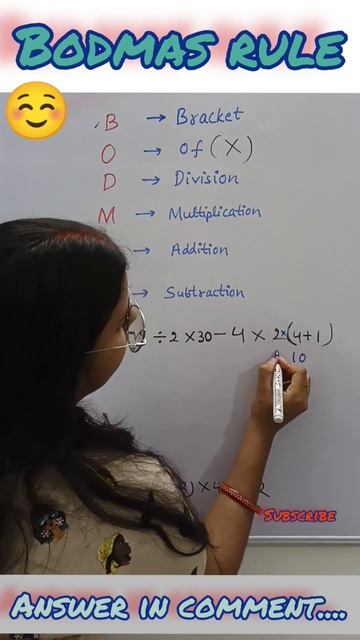 BODMAS RULE
B → Bracket
O → Of (X)
D → Division
M → Multiplication
→ Addition
→ Subtraction
÷ 2 × 30 - 4 × 2×(4+1)
10
) × 4 2
SUBSCRIBE
ANSWER IN COMMENT....